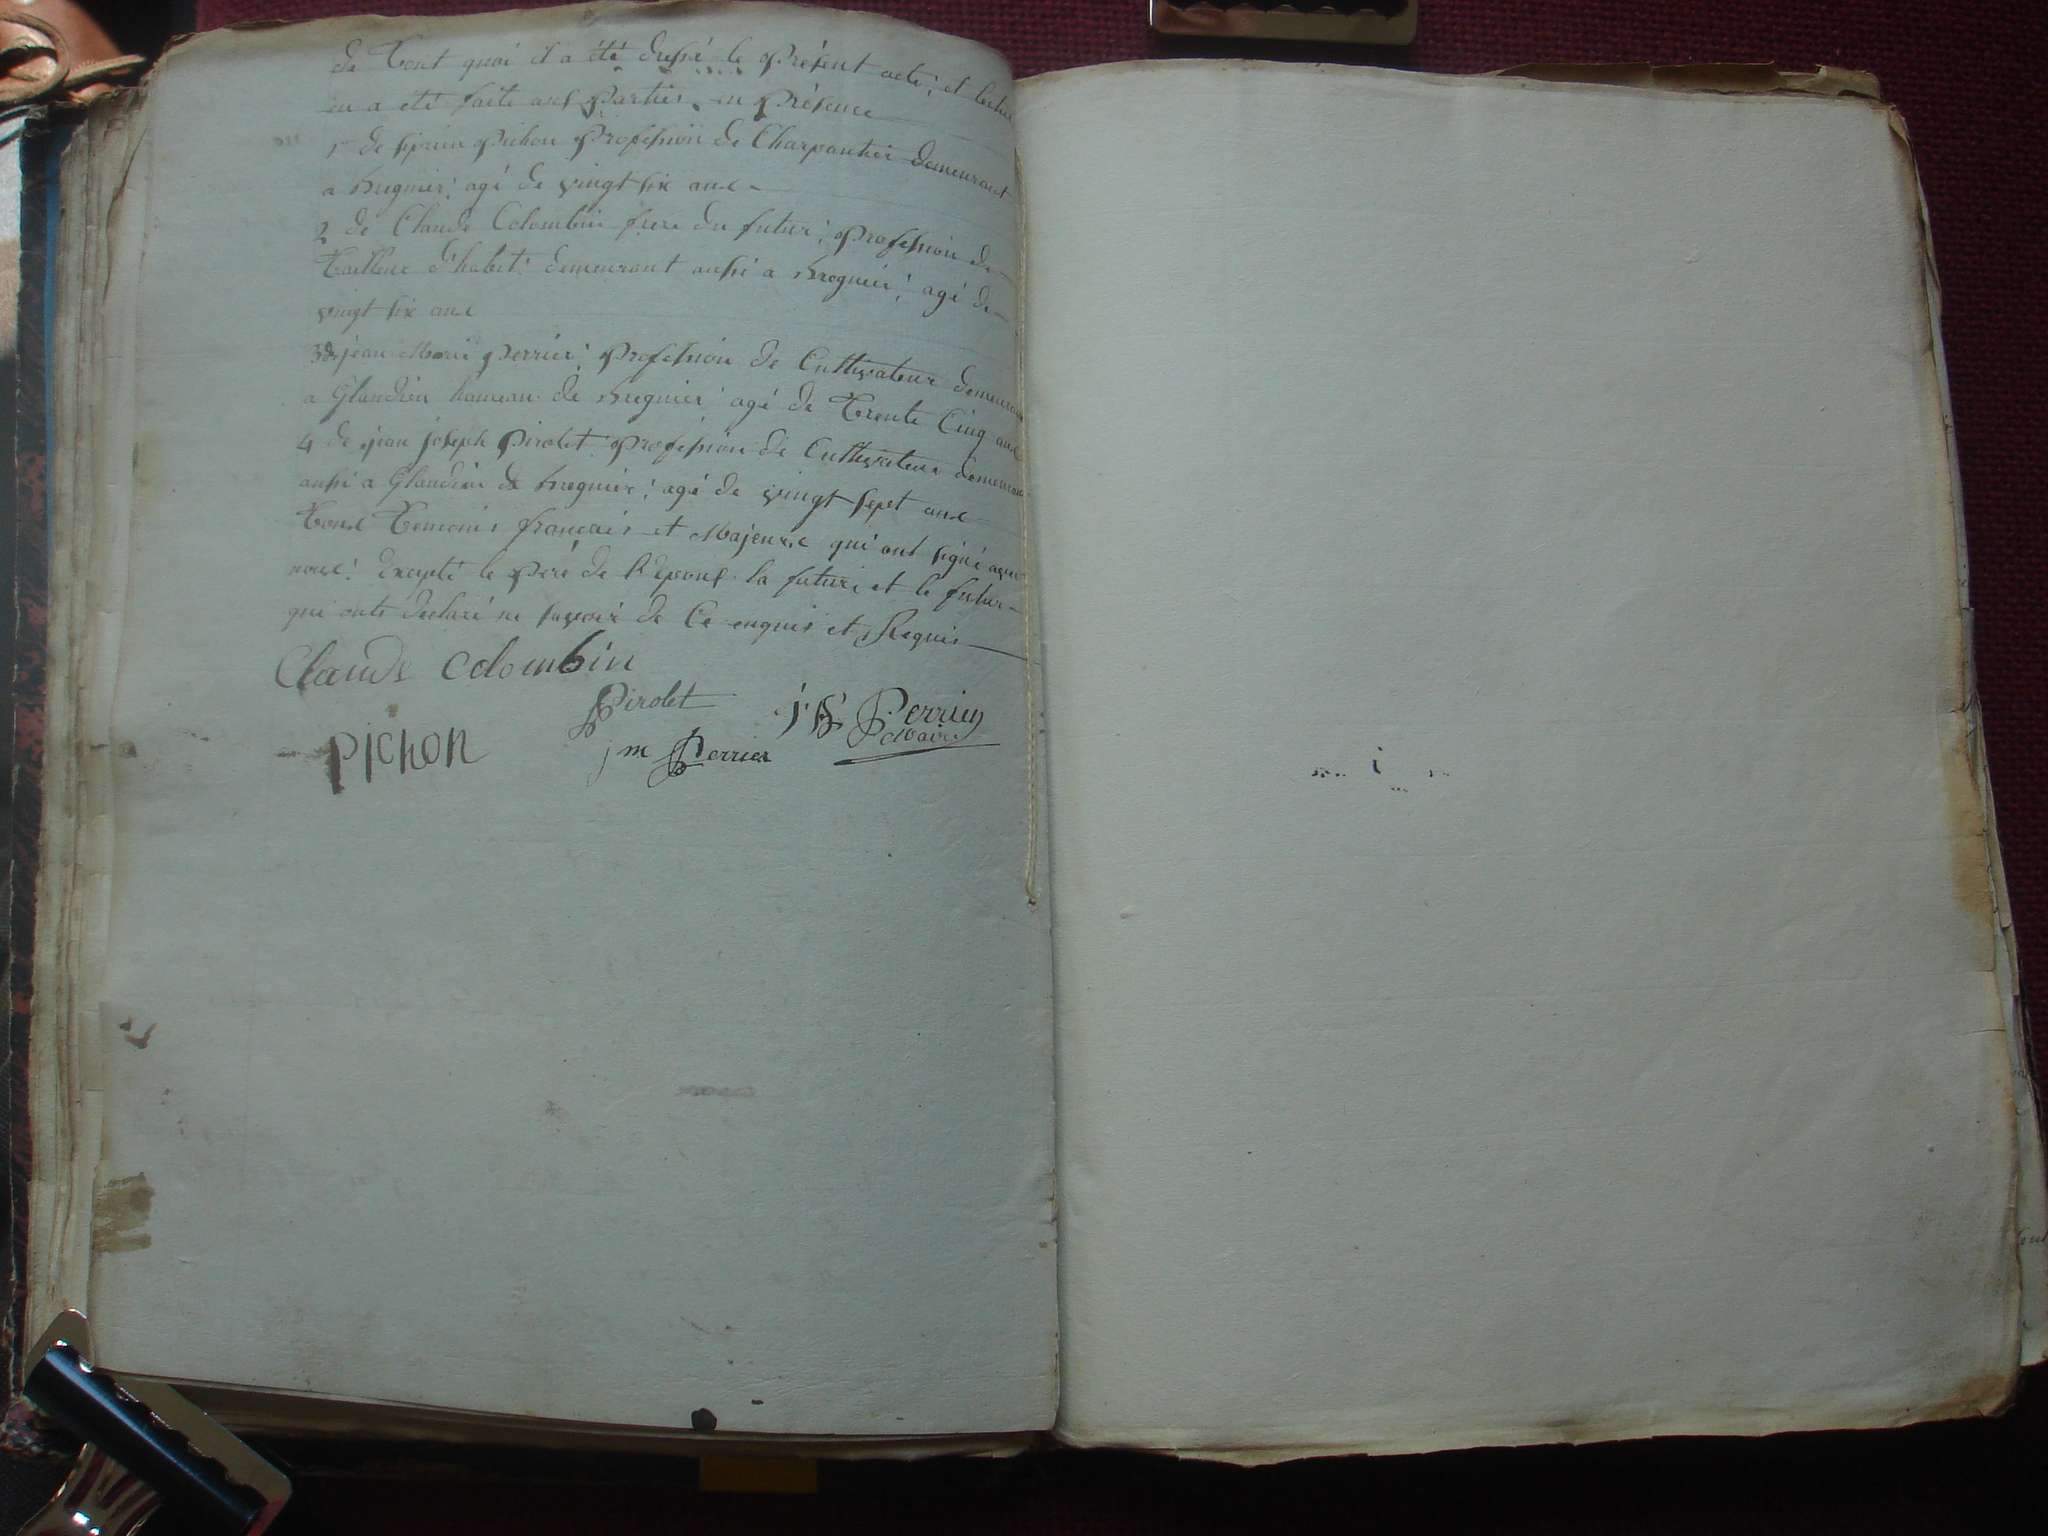 de tout quoi il a été dressé le présent acte; et lecture
en a été faite aux parties en présence
1r de Pichon Profession de Charpentier demeurant
a Bregnier; agé de vingt six ans
2 de Claude Colombin frere du futur; Profession de
tailleur d'habit; demeurant aussi a Bregnier; agé de
vingt six ans
3 de jean Marie perrier; Profession de Cultivateur demeurant
a Glandieu hameau de Bregnier agé de trente Cinq ans
4 de jean joseph Pirolet Profession de Cultivateur demeurant
aussi a Glandieu de bregnier; agé de vingt sept ans
tous temoins francais et Majeurs qui ont signé avec
nous; Excepté le Pere de l'Epoux la future et le futur
qui onts declaré ne savoir de Ce enquis et Requis
Claude Colombin
Pirolet
PICHON
jm Perrier
Perrier
Maire